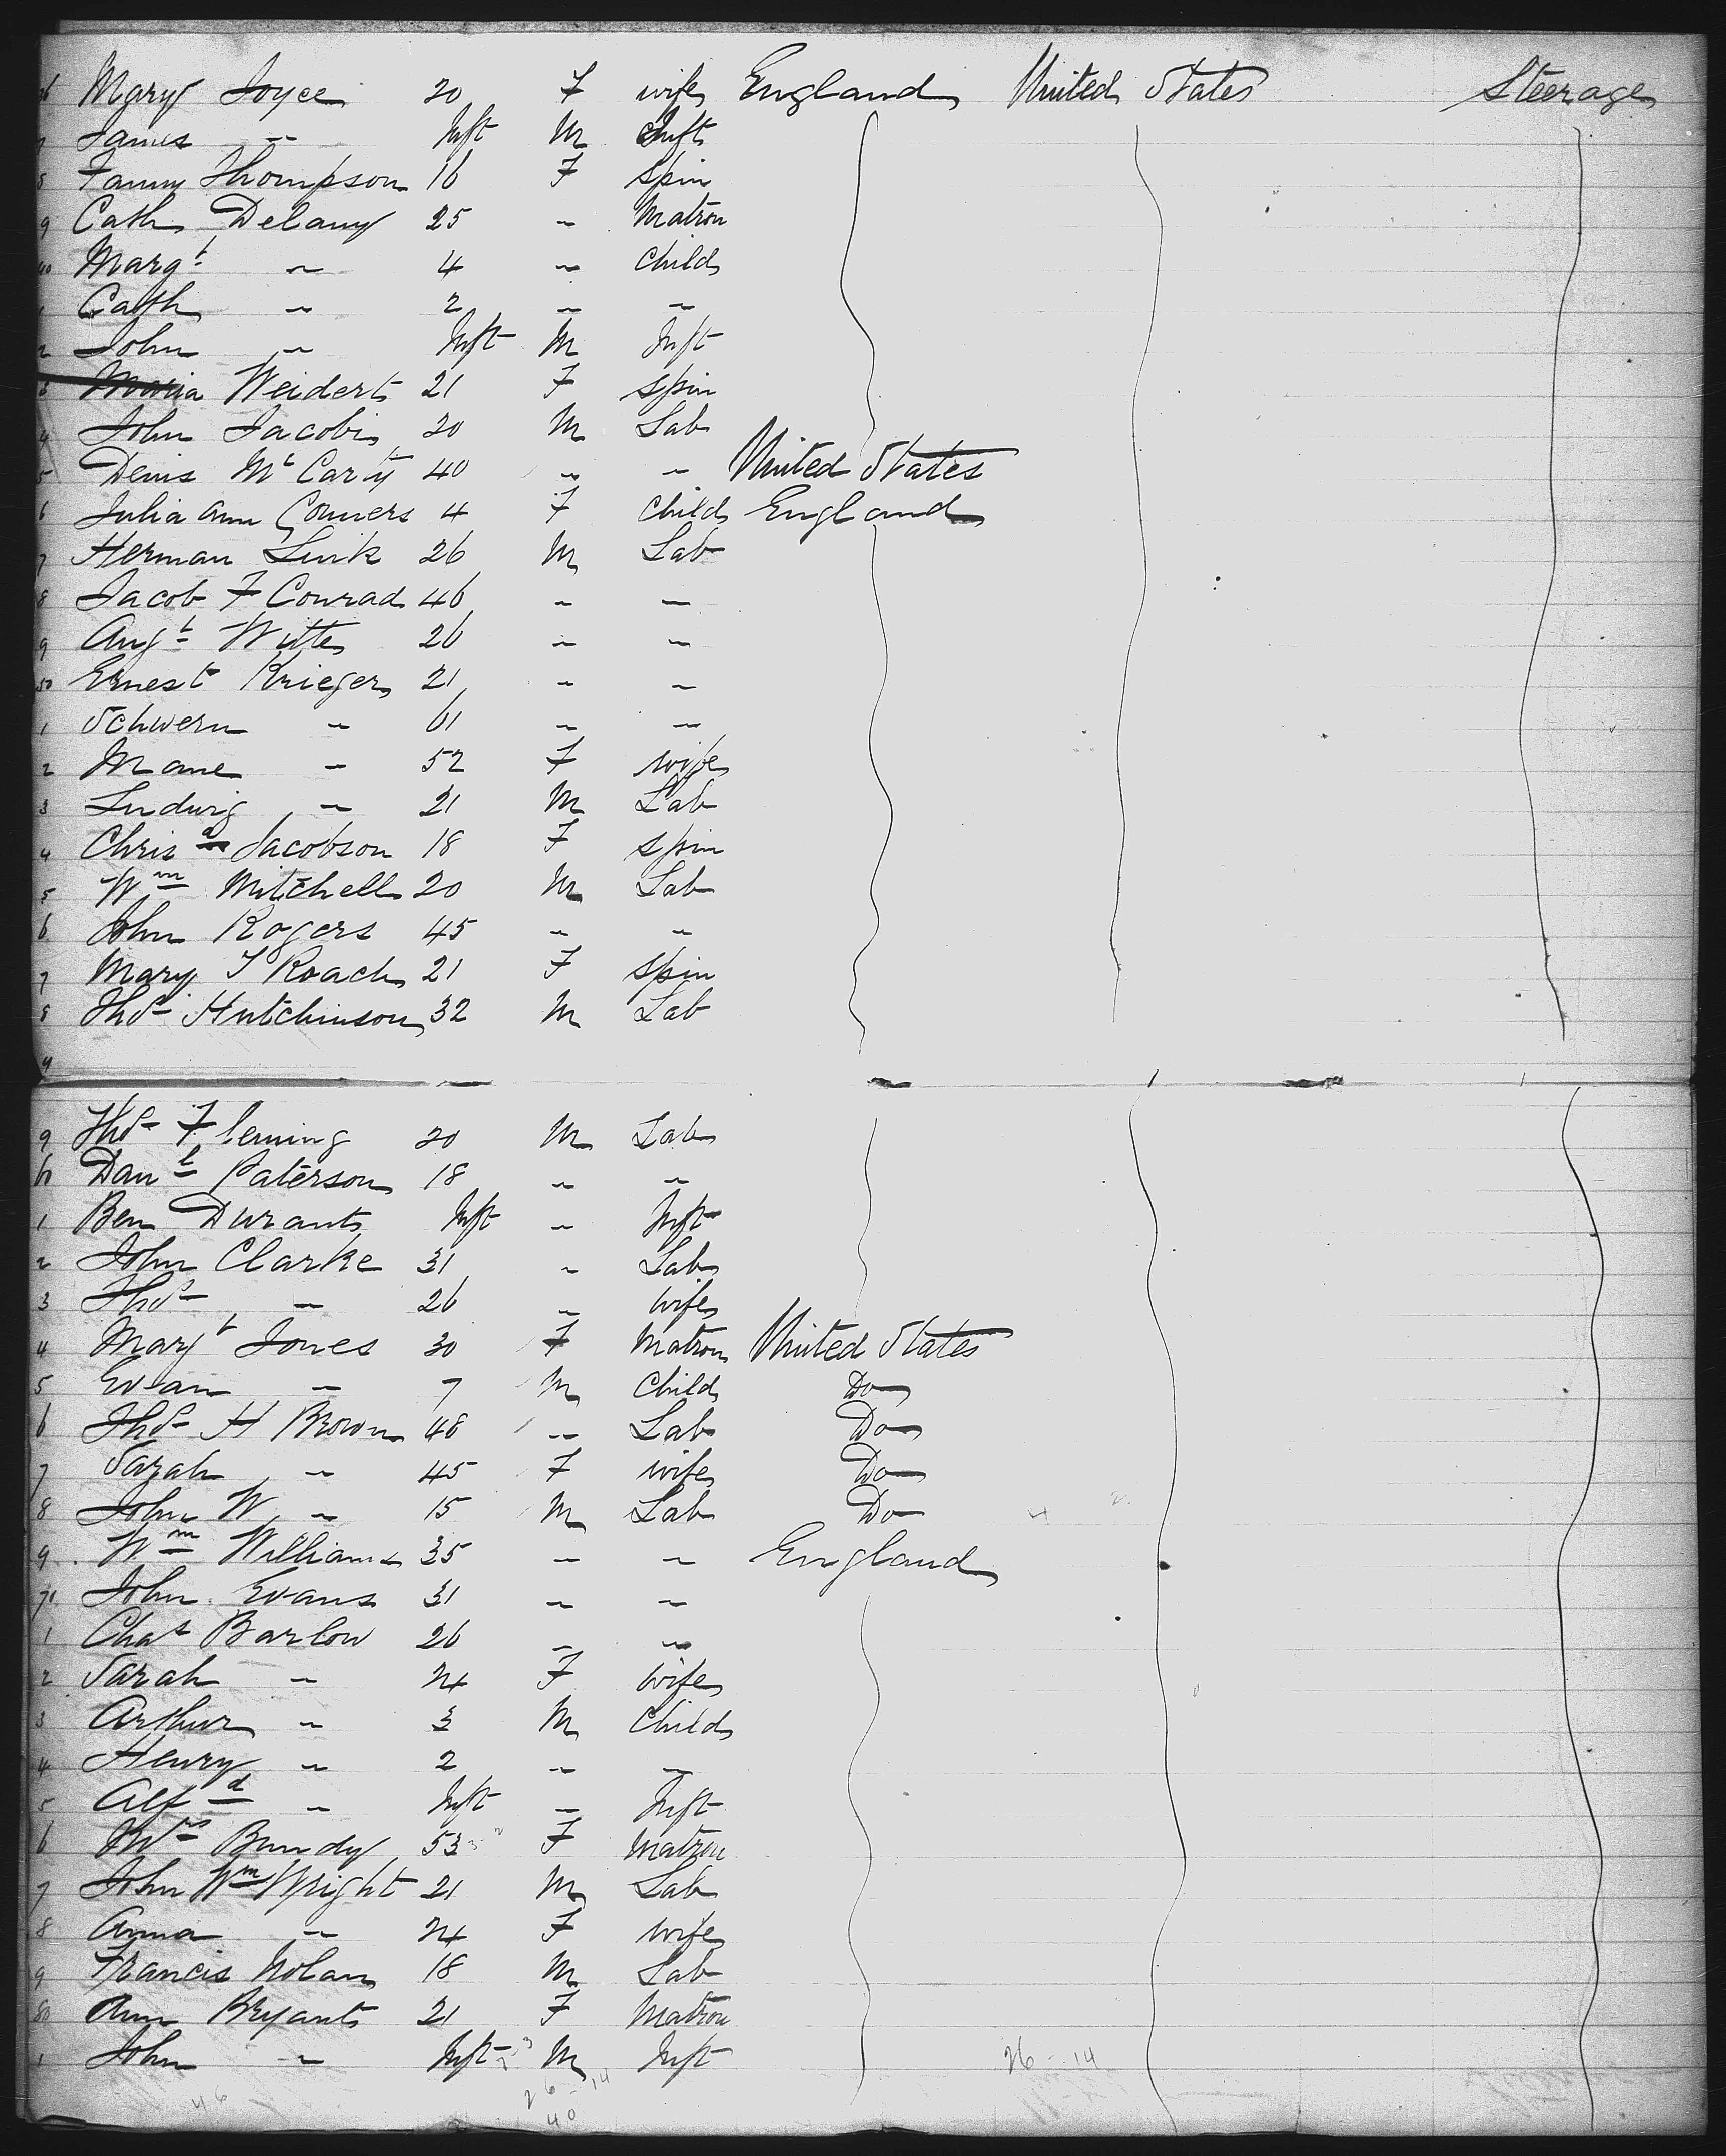 36 Mary Joyce 20 F wife England United States Steerage
7 James " Inft M Inft
8 Fanny Thompson 16 F Spin
9 Cath Delany 25 " Matron
40 Margt " 4 " Child
1 Cath " 2 " "
2 John " Inft M Inft
3 Maria Weidert 21 F Spin
4 John Jacobi 20 M Lab
5 Denis McCarty 40 " " United States
6 Julia Ann Conners 4 F Child England
7 Herman Link 26 M Lab
8 Jacob F Conrad 46 " "
9 Augt Witte 26 " "
50 Ernest Krieger 21 " "
1 Schwern " 61 " "
2 Marie " 52 F wife
3 Ludwig " 21 M Lab
4 Chrisa Jacobson 18 F Spin
5 Wm Mitchell 20 M Lab
6 John Rogers 45 " "
7 Mary T Roach 21 F Spin
8 Thos Hutchinson 32 M Lab
9
9 Thos Fleming 20 M Lab
60 Danl Paterson 18 " "
1 Ben Durant Inft " Inft
2 John Clarke 31 " Lab
3 Thos " 26 " wife
4 Margt Jones 30 F Matron United States
5 Evan " 7 M Child Do
6 Thos H Brown 48 " Lab Do
7 Sarah " 45 F wife Do
8 John W " 15 M Lab Do
9 Wm Williams 35 " " England
70 John Evans 31 " "
1 Chas Barlow 26 " "
2 Sarah " 24 F wife
3 Arthur " 3 M Child
4 Henry " 2 " "
5 Alfd " Inft " Inft
6 Mrs Bundy 53 F Matron
7 John Wm Wright 21 M Lab
8 Anna " 24 F wife
9 Francis Nolan 18 M Lab
80 Ann Bryant 21 F Matron
1 John " Inft M Inft 26 - 14
46 26 - 14
40